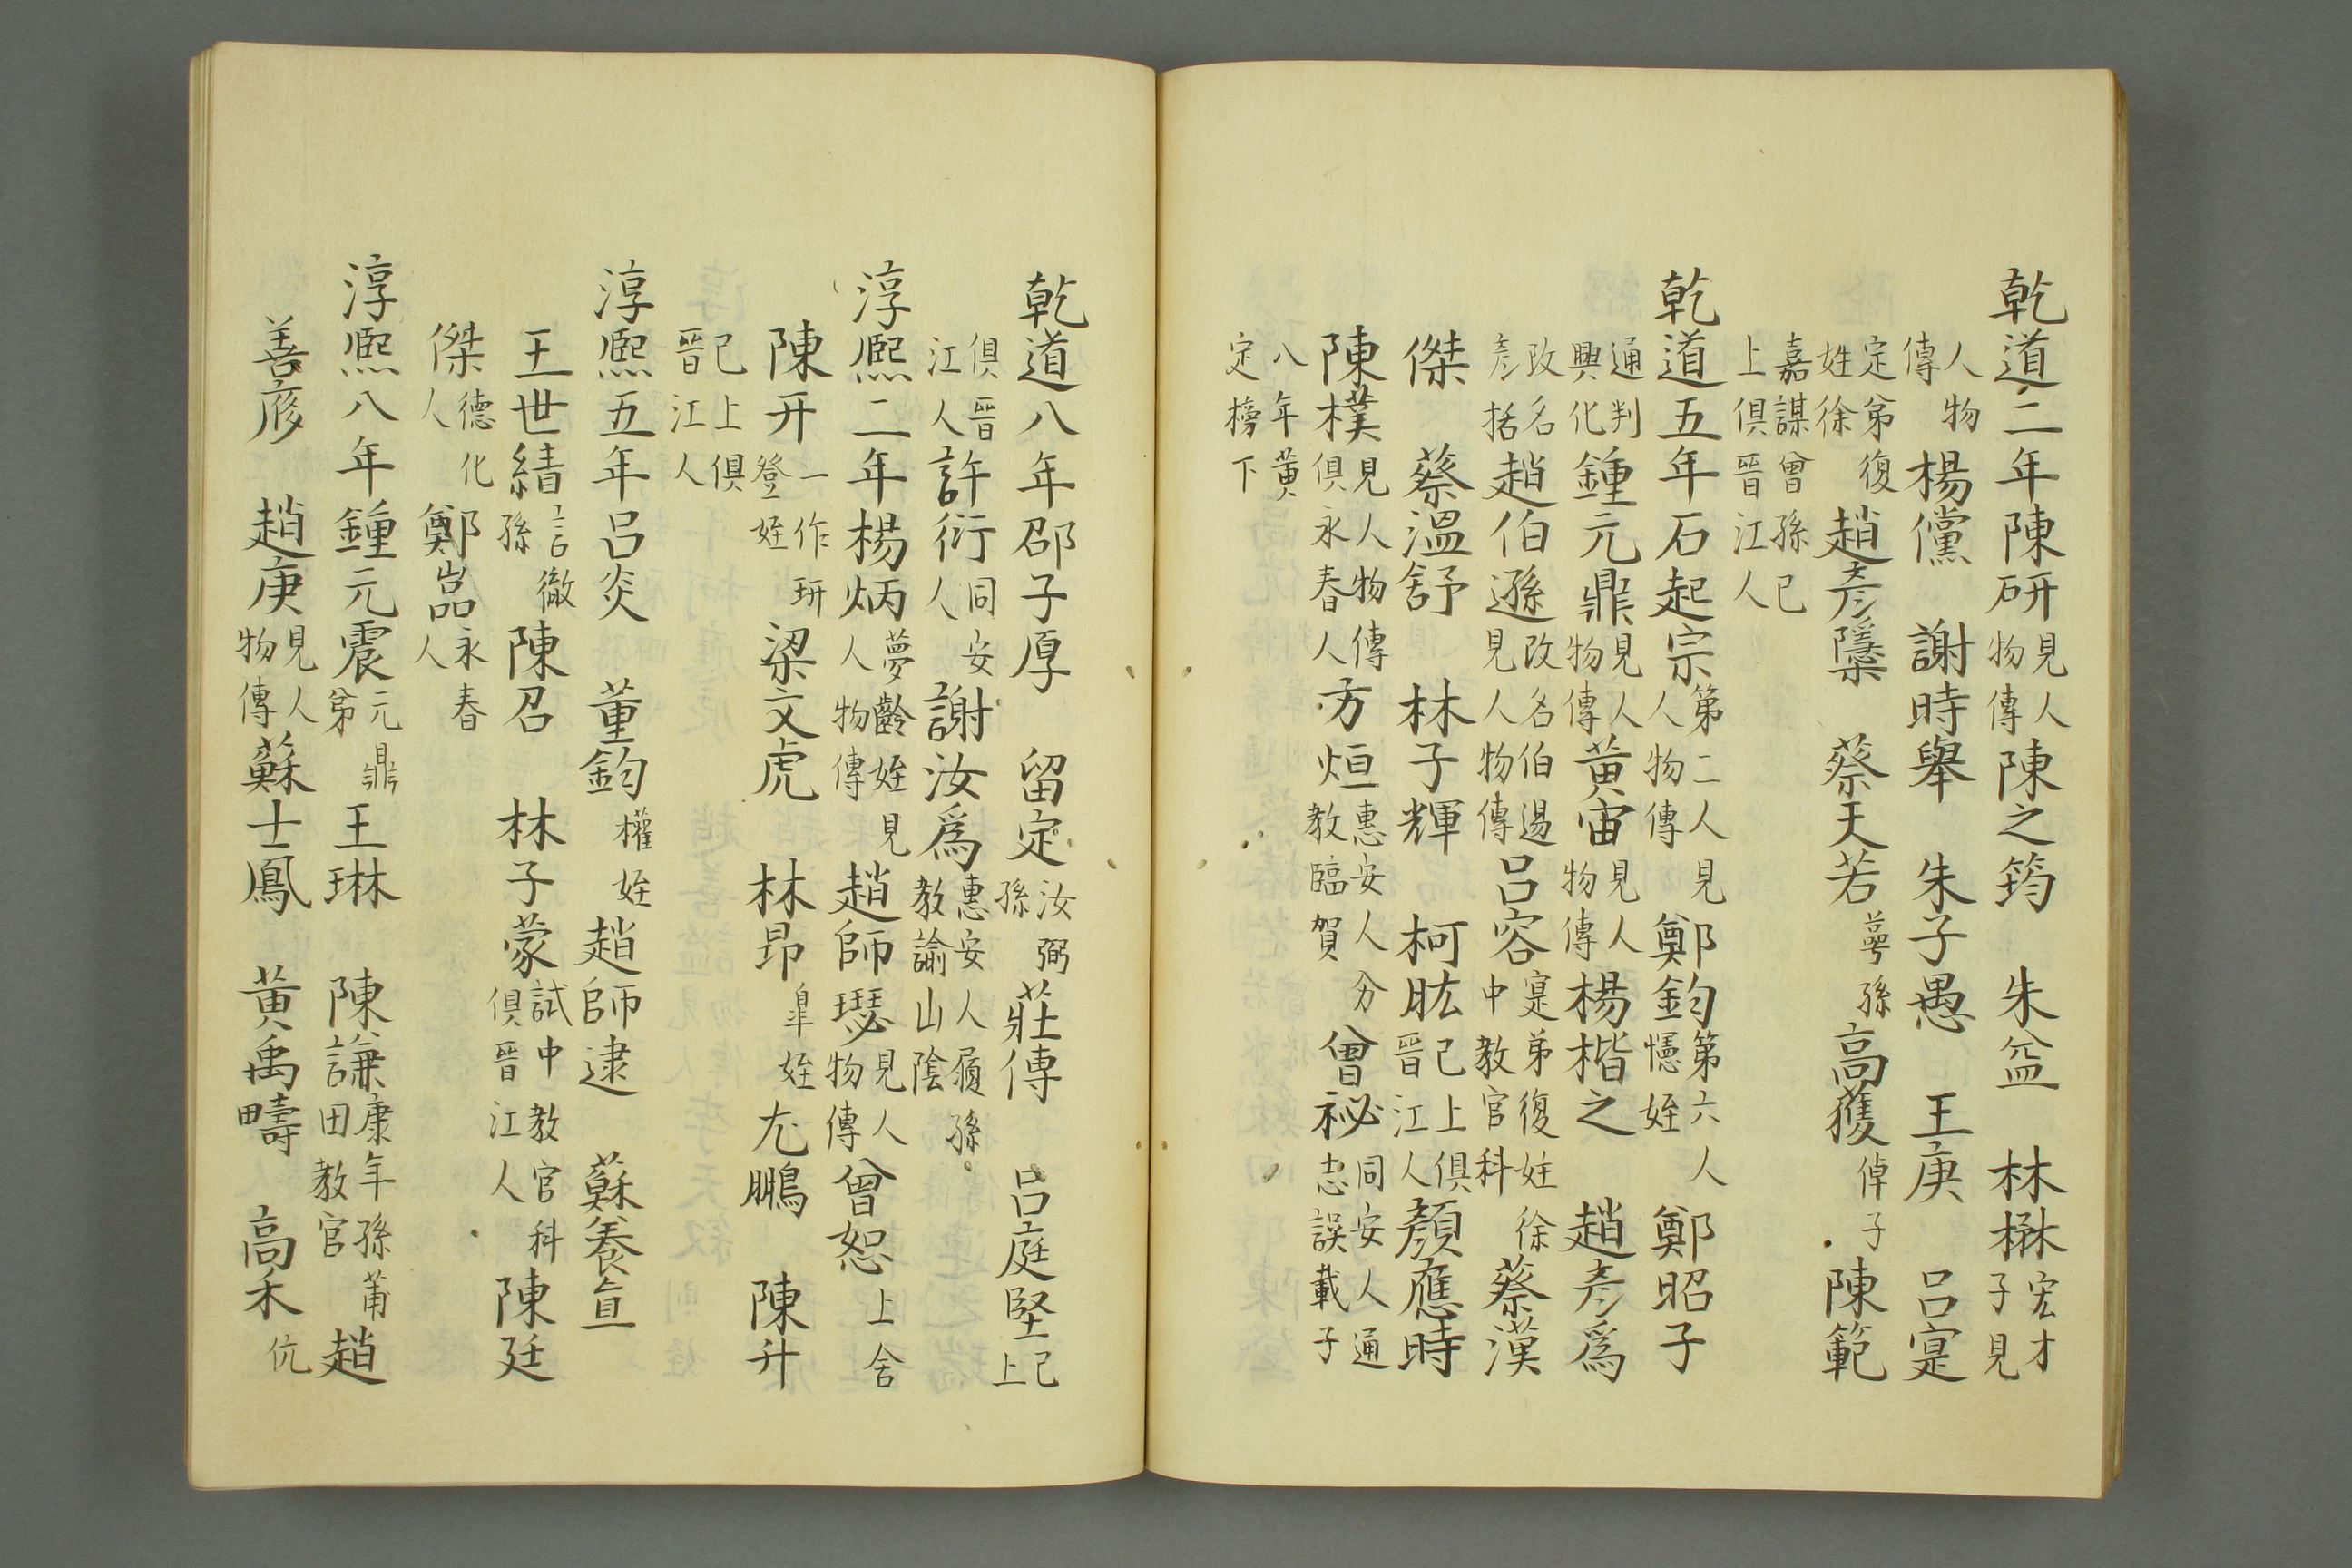 乾道二年陳研見人物傳陳之筠　朱盆　林楙宏才子見
人物傳楊儻　謝時舉　朱子愚　王庚　呂寔
定弟復姓徐趙彥隱　蔡天若蕚孫高𫉬倬子陳範
嘉謀曾孫已上俱晉江人
乾道五年石起宗第二人見人物傳鄭鈞第六人懬姪鄭昭子
通判興化鍾元鼎見人物傳黃宙見人物傳楊楷之　趙彥爲
改名彥括趙伯遜改名伯逿見人物傳呂容寔弟復姓徐中教官科蔡漢
傑　蔡溫舒　林子輝　柯肱已上俱晉江人顏應時
陳樸見人物傳俱永春人方烜惠安人分教臨賀曾祕同安人通志誤載子
八年黃定榜下
乾道八年邵子厚　留定汝弼孫莊傳　呂庭堅已上
俱晉江人許衍同安人謝汝爲惠安人履孫教諭山陰
淳熙二年楊炳夢齡姪見人物傳趙師瑟見人物傳曾恕上舍
陳幵一作玬登姪梁文虎　林昂臯姪尢鵬　陳升
已上俱晉江人
淳熙五年呂炎　董鈞權姪趙師逮　蘇養直
王世績言徹孫陳召　林子蒙試中教官科俱晉江人陳廷
傑德化人鄭嵓永春人
淳熙八年鍾元震元鼎弟王琳　陳謙康年孫莆田教官趙
善彥　趙庚見人物傳蘇士鳳　黃禹疇　高禾伉